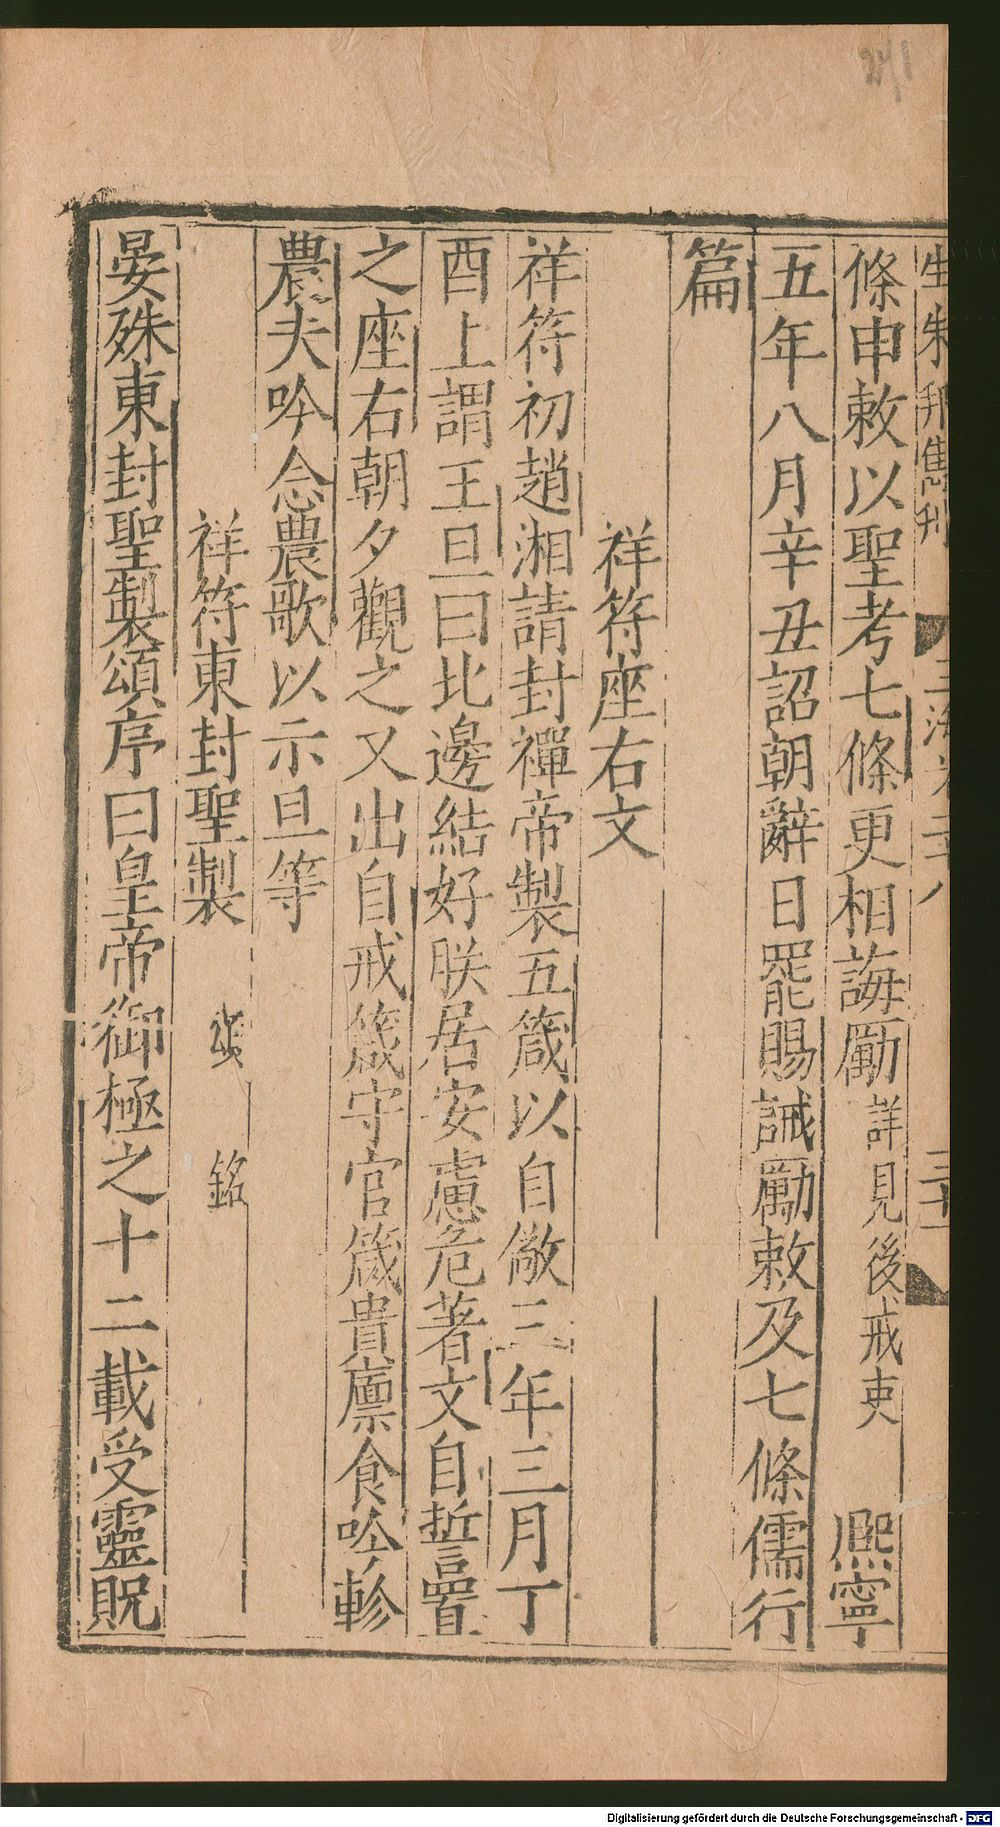 241
條申敕以聖考七條更相誨勵詳見後戒吏 熈寧
五年八月辛丑詔朝辭日罷賜誡勵敕及七條儒行
篇
祥符座右文
祥符初趙湘請封禪帝製五箴以自儆三年三月丁
酉上謂王旦曰北邊結好朕居安慮危著文自誓置
之座右朝夕觀之又出自戒箴守官箴貴廪食吟軫
農夫吟念農歌以示旦等
祥符東封聖製 頌 銘
晏殊東封聖製頌序曰皇帝御極之十二載受靈貺
Digitalisierung gefördert durch die Deutsche Forschungsgemeinschaft - DFG